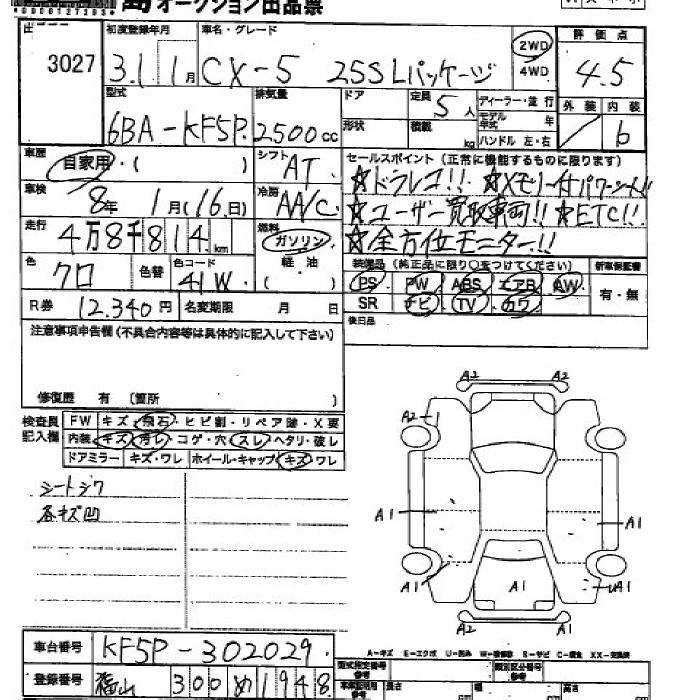 オークション出品票
*00001272854*
出 初度登録年月 車名・グレード 評価点
3027 3.1年1月 CX-5 25S Lパッケージ 2WD 4WD 4.5
型式 排気量 ドア 定員 5人 ディーラー・並行 外装 内装
6BA-KF5P 2500cc 形状 積載 kg モデル年式 年 ハンドル 左・右 6
車歴 自家用・( ) シフト AT セールスポイント(正常に機能するものに限ります)
☆ドラレコ!! ☆メモリー付パワーシート!!
車検 8年1月(16日) 冷房 AA/C
☆ユーザー買取車両!! ☆ETC!!
走行 4万8千814km 燃料 ガソリン 軽油 ( )
☆全方位モニター!!
色 クロ 色替 色コード 41W
装備品(純正品に限り○をつけてください) 新車保証書
PS PW ABS エアB AW 有・無
SR ナビ TV カワ
R券 12.340円 名変期限 月 日
後日品
注意事項申告欄(不具合内容等は具体的に記入して下さい)
修復歴 有 (箇所 )
検査員記入欄
FW キズ・飛石・ヒビ割・リペア跡・X要
内装 キズ・汚レ・コゲ・穴・スレ・ヘタリ・破レ
ドアミラー キズ・ワレ ホイール・キャップ キズ・ワレ
シートシワ
各キズ凹
A2 A2
A2-1
A1 A1
A1 A1 A1
A2 A2
A-キズ E-エクボ U-凹み W-補修跡 S-サビ C-腐食 XX-交換済
車台番号 KF5P-302029
登録番号 福山 300 め 1948
型式指定番号 参考 類別区分番号 参考
車車証明用 参考 長さ cm 幅 cm 高さ cm